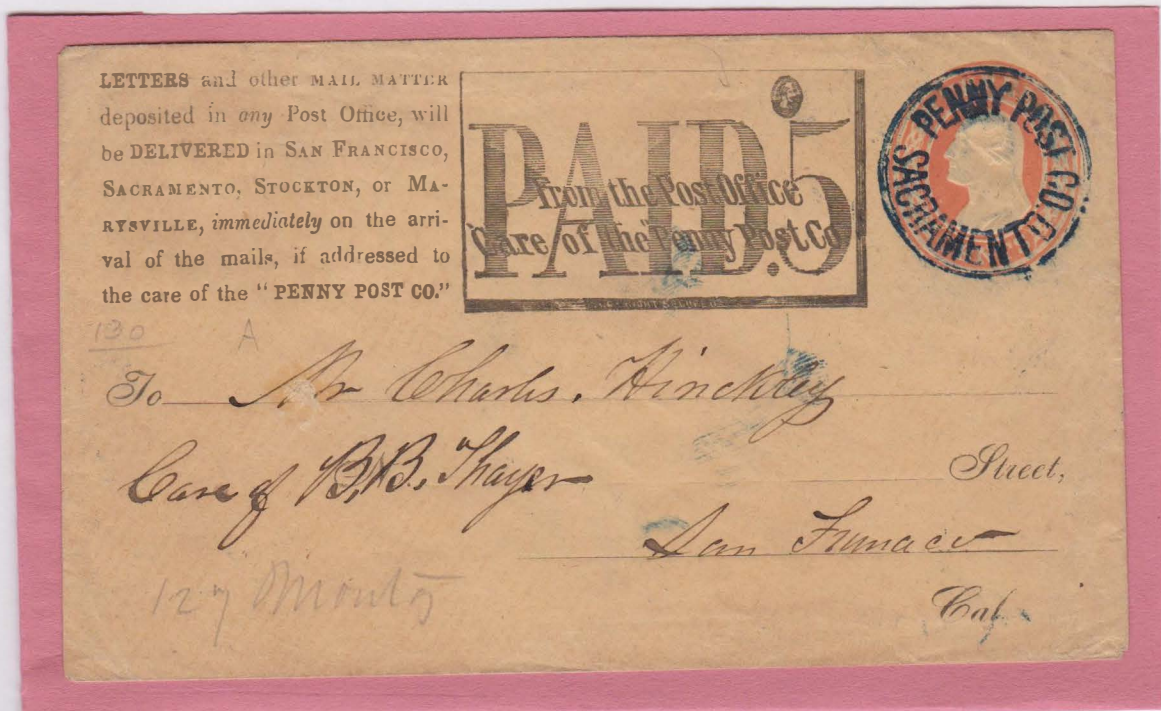 LETTERS and other MAIL MATTER
deposited in any Post Office, will
be DELIVERED in SAN FRANCISCO,
SACRAMENTO, STOCKTON, or MA-
RYSVILLE, immediately on the arri-
val of the mails, if addressed to
the care of the "PENNY POST CO."
PAID.5
from the Post Office
Care of the Penny Post Co
PENNY POST CO.
SACRAMENTO
130
A
To Mr Charles. Hinckley
Care of B.B. Thayer
Street,
San
Cal.
127